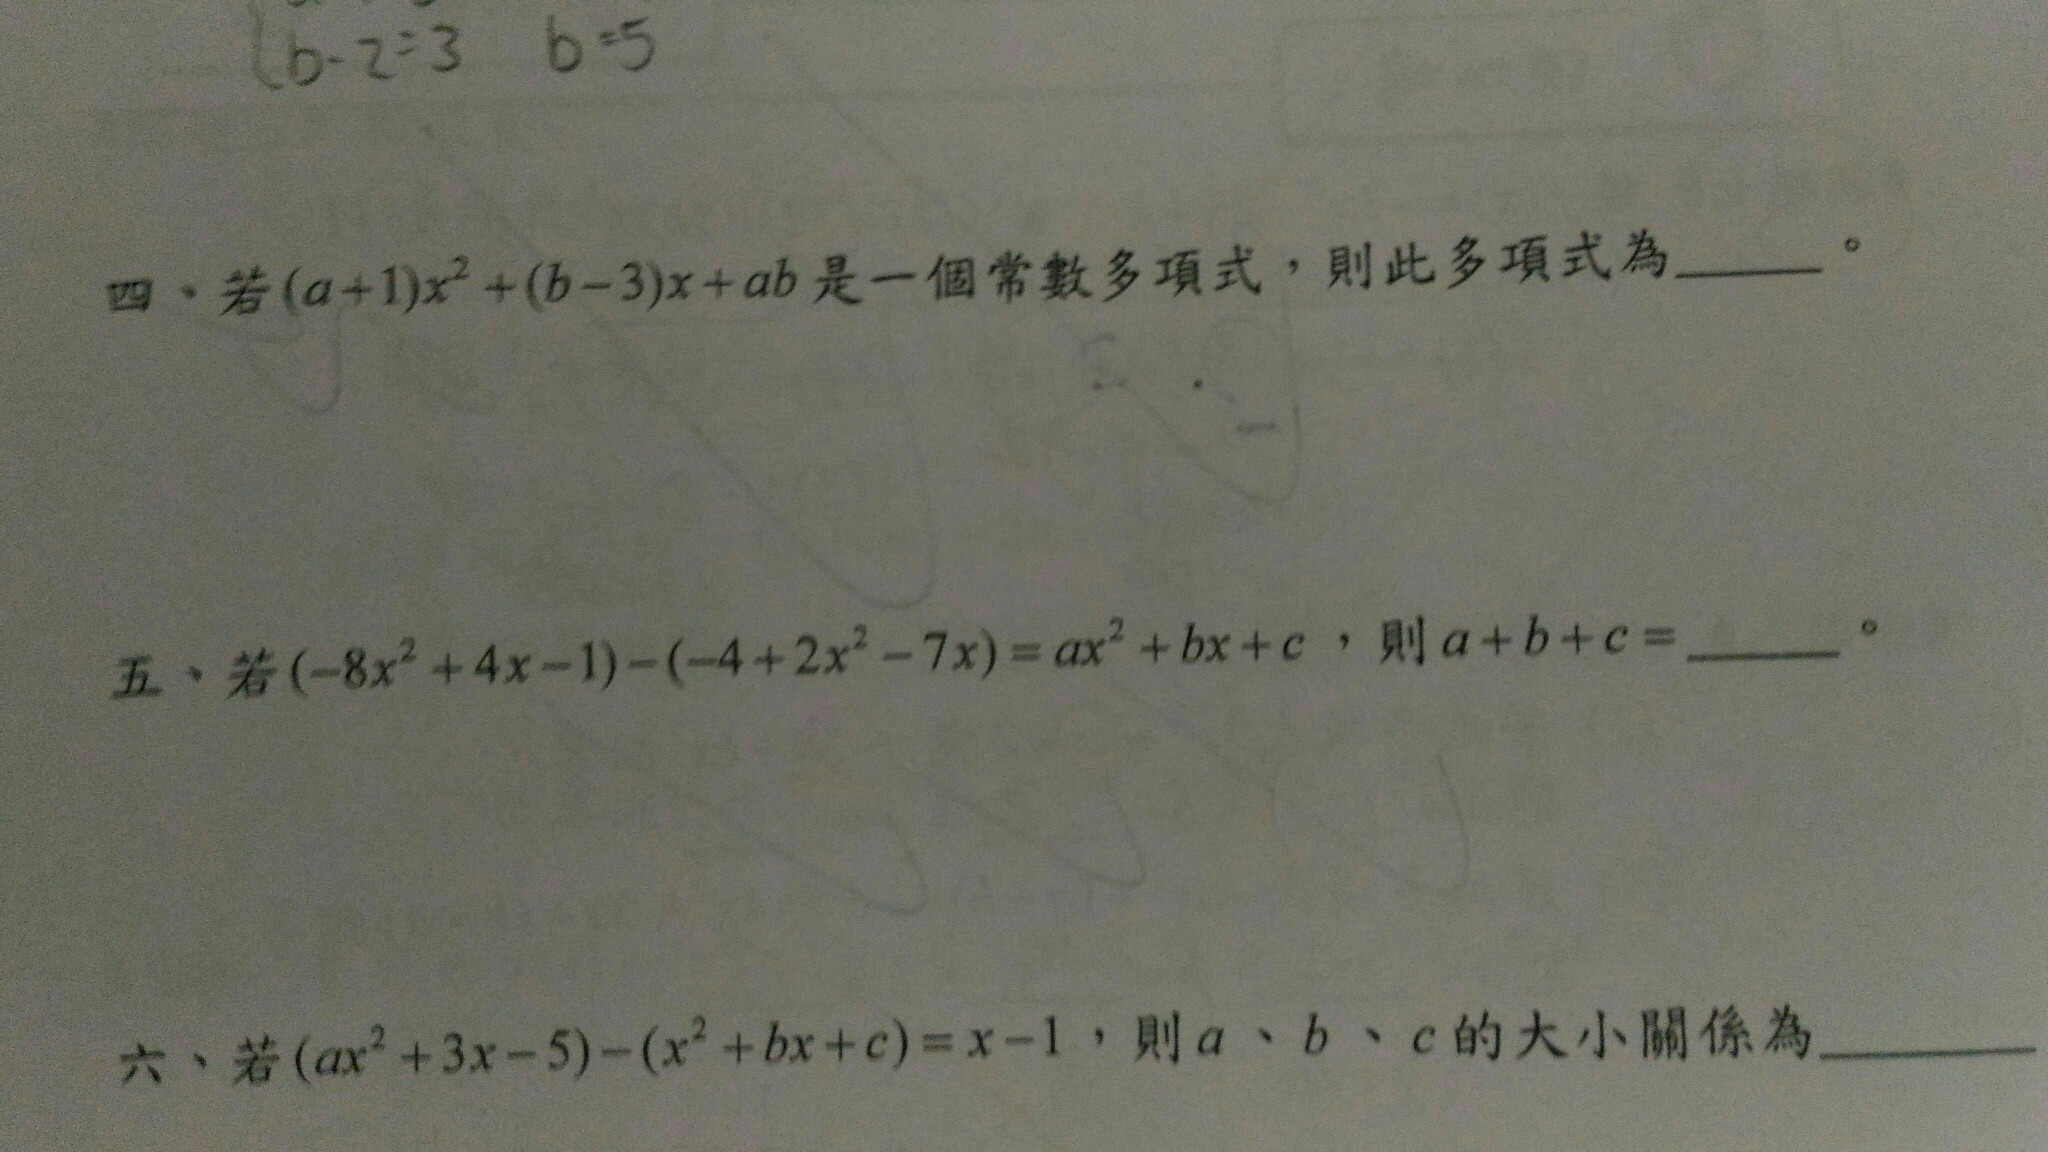 b-2=3 b=5
四、若(a+1)x²+(b-3)x+ab是一個常數多項式，則此多項式為_____。
五、若(-8x²+4x-1)-(-4+2x²-7x)=ax²+bx+c，則a+b+c=_____。
六、若(ax²+3x-5)-(x²+bx+c)=x-1，則a、b、c的大小關係為_______